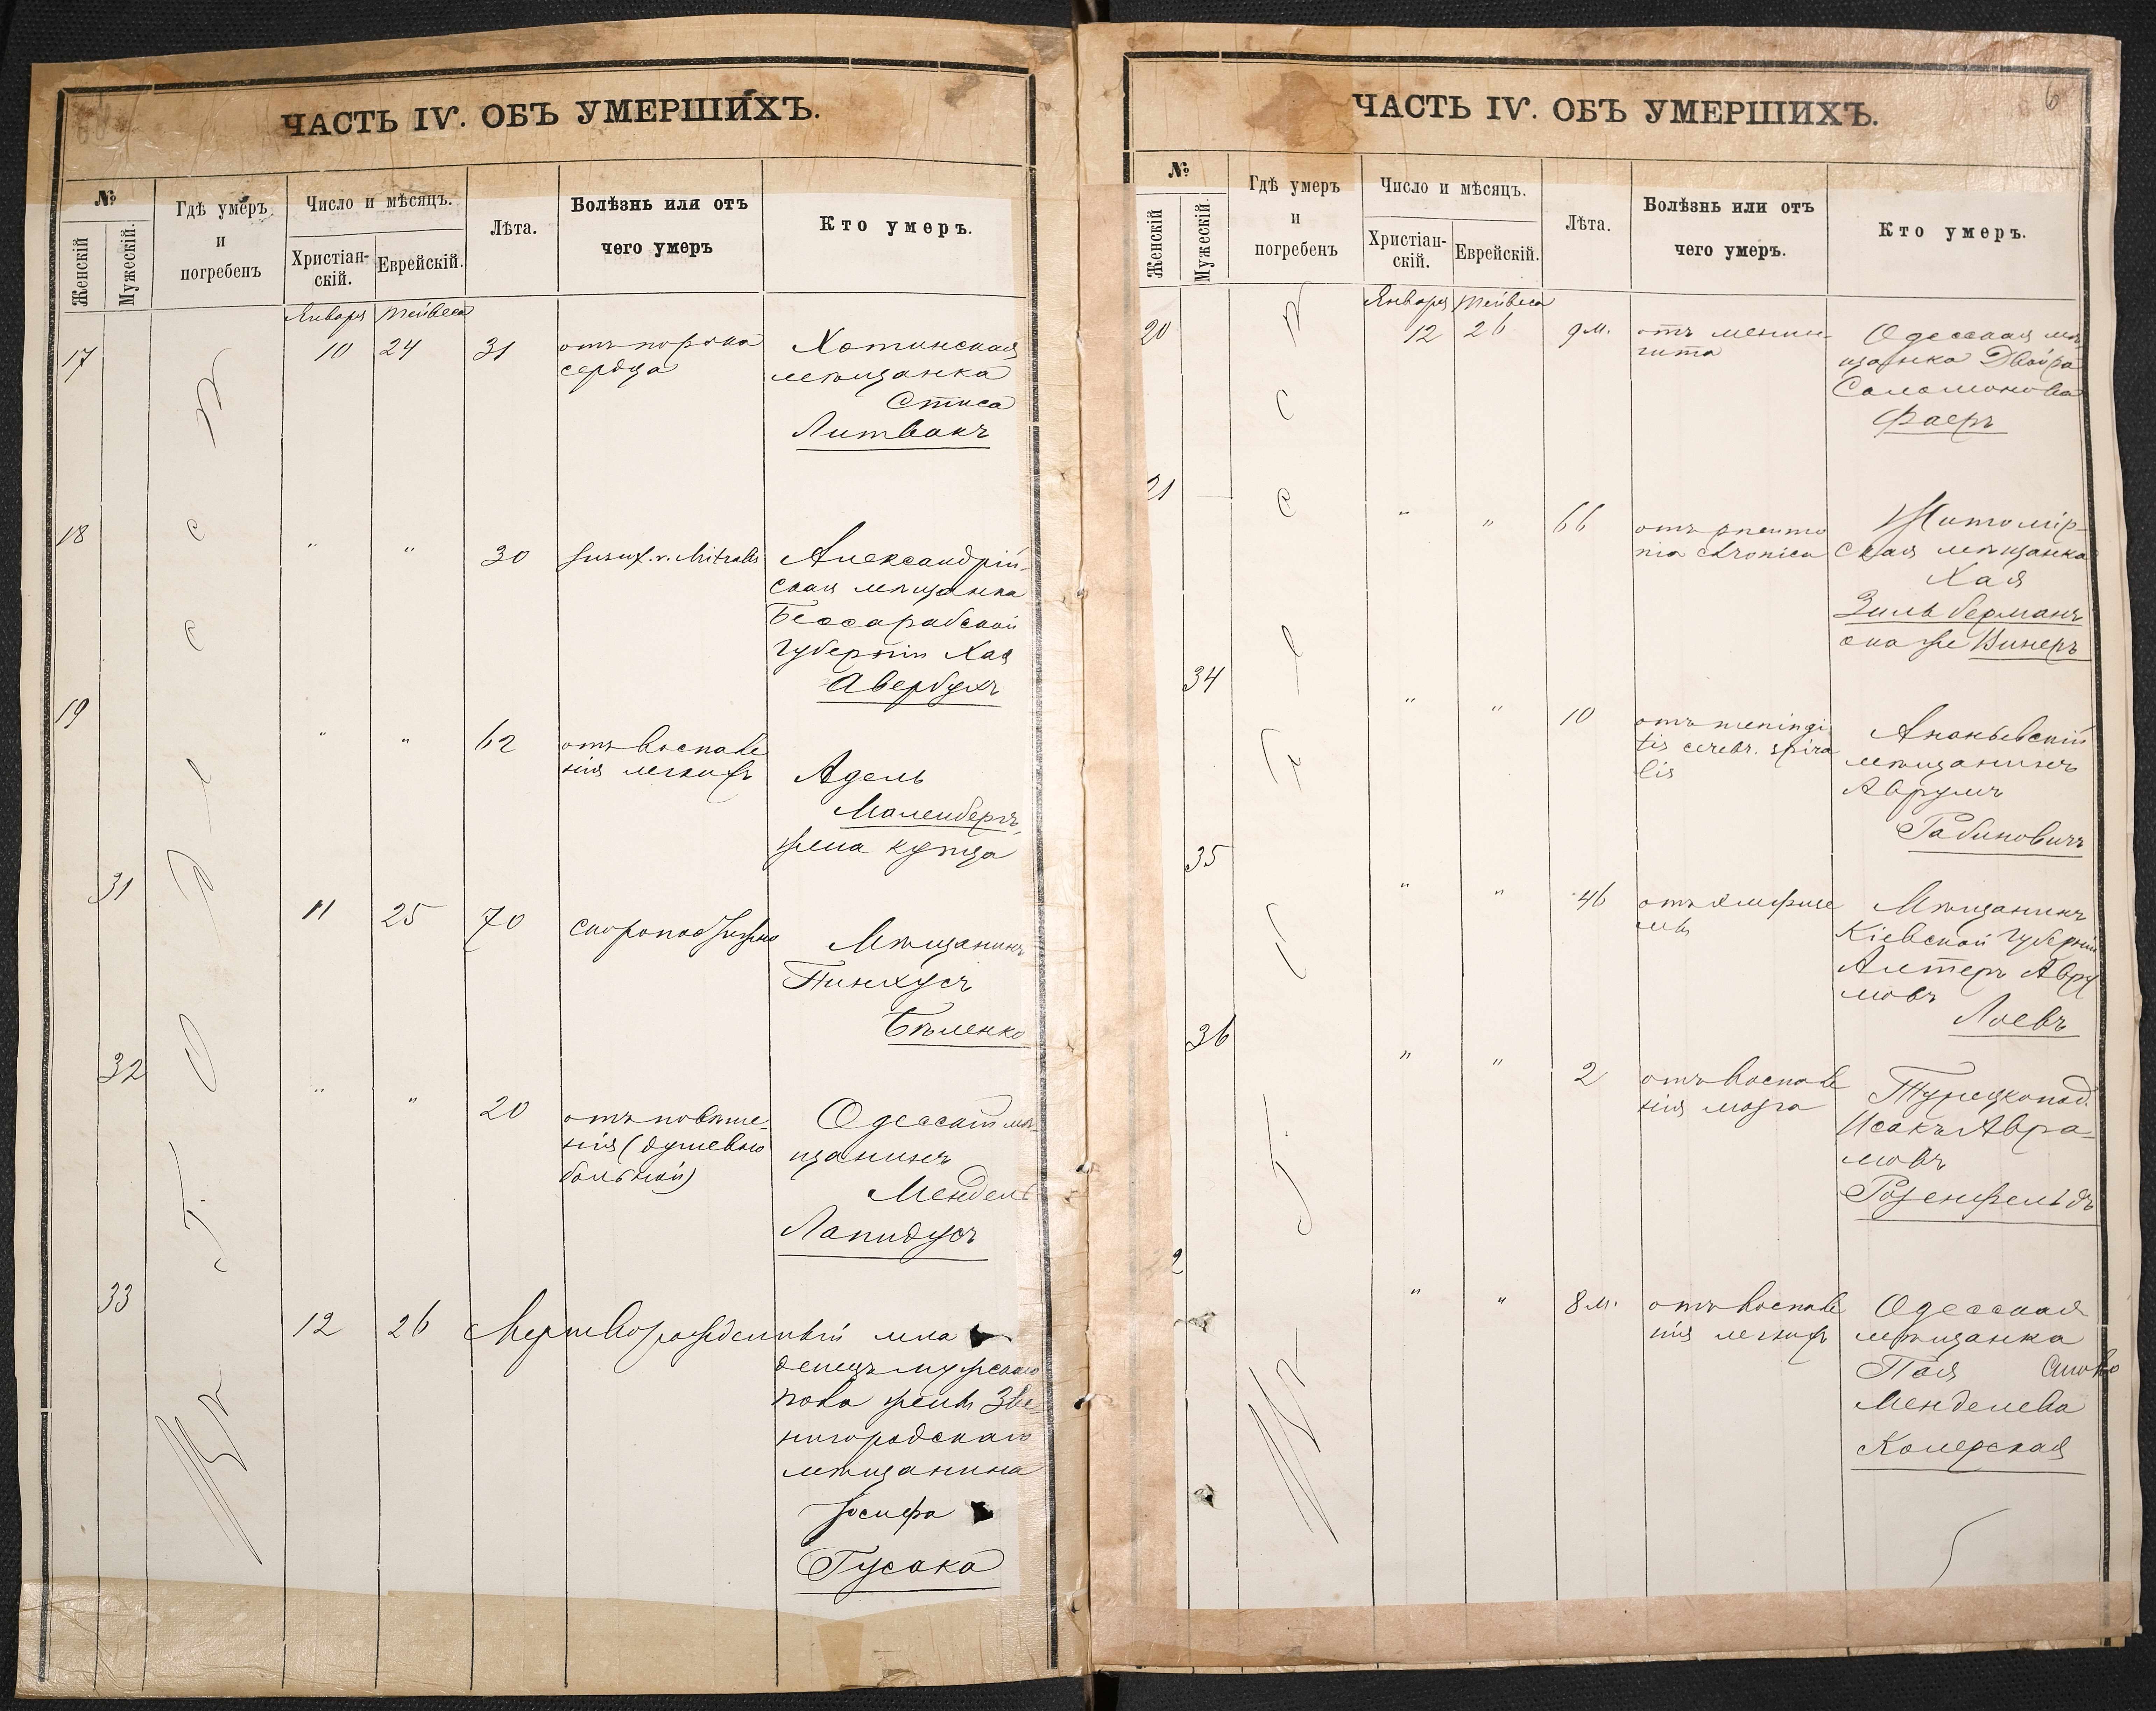 ЧАСТЬ IV. ОБЪ УМЕРШИХЪ.
№
Женскій
Мужескій.
Гдѣ умеръ
и
погребенъ
Число и мѣсяцъ.
Христіан-
скій.
Еврейскій.
Лѣта.
Болѣзнь или отъ
чего умеръ
Кто умеръ.
Января Тейвеса
17 10 24 31 отъ порока
сердца
Хотинская
мѣщанка
Стиса
Литвакъ
18 " " 30 Insuf. v. Mitralis
Александрій-
ская мѣщанка
Бессарабской
губерніи Хая
Авербухъ
19 " " 62 отъ воспале
нія легкихъ
Адель
Маленбергъ,
жена купца
31 11 25 70 скоропостижно
Мѣщанинъ
Пинхусъ
Бѣленко
32 " " 20 отъ повѣше-
нія (душевно
больной)
Одесскій мѣ-
щанинъ
Мендель
Лапидусъ
33 12 26 Мертворожденный мла
денецъ мужскаго
пола жены Зве-
нигородскаго
мѣщанина
Іосифа
Гусака
В
ъ
Г.
О
ЧАСТЬ IV. ОБЪ УМЕРШИХЪ.
6
№
Женскій
Мужескій.
Гдѣ умеръ
и
погребенъ
Число и мѣсяцъ.
Христіан-
скій.
Еврейскій.
Лѣта.
Болѣзнь или отъ
чего умеръ.
Кто умеръ.
Января Тейвеса
20 12 26 9 м. отъ менин-
гита
Одесская мѣ-
щанка Двойра
Саломонова
Фаеръ
21 — " " 66 отъ pneumo
nia chronica
Житомір-
ская мѣщанка
Хая
Зильберманъ
она же Винеръ
34 " " 10 отъ meningi
tis cerebr. spina
lis
Ананьевскій
мѣщанинъ
Аврумъ
Рабиновичъ
35 " " 46 отъ эмфизе
мы
Мѣщанинъ
Кіевской губерніи
Алтеръ Авру
мовъ
Лоевъ
36 " " 2 отъ воспале
нія мозга
Турецкопод.
Исакъ Авра-
мовъ
Розенфельдъ
2 " " 8 м. отъ воспале
нія легкихъ
Одесская
мѣщанка
Пая
Менделева
Колерская